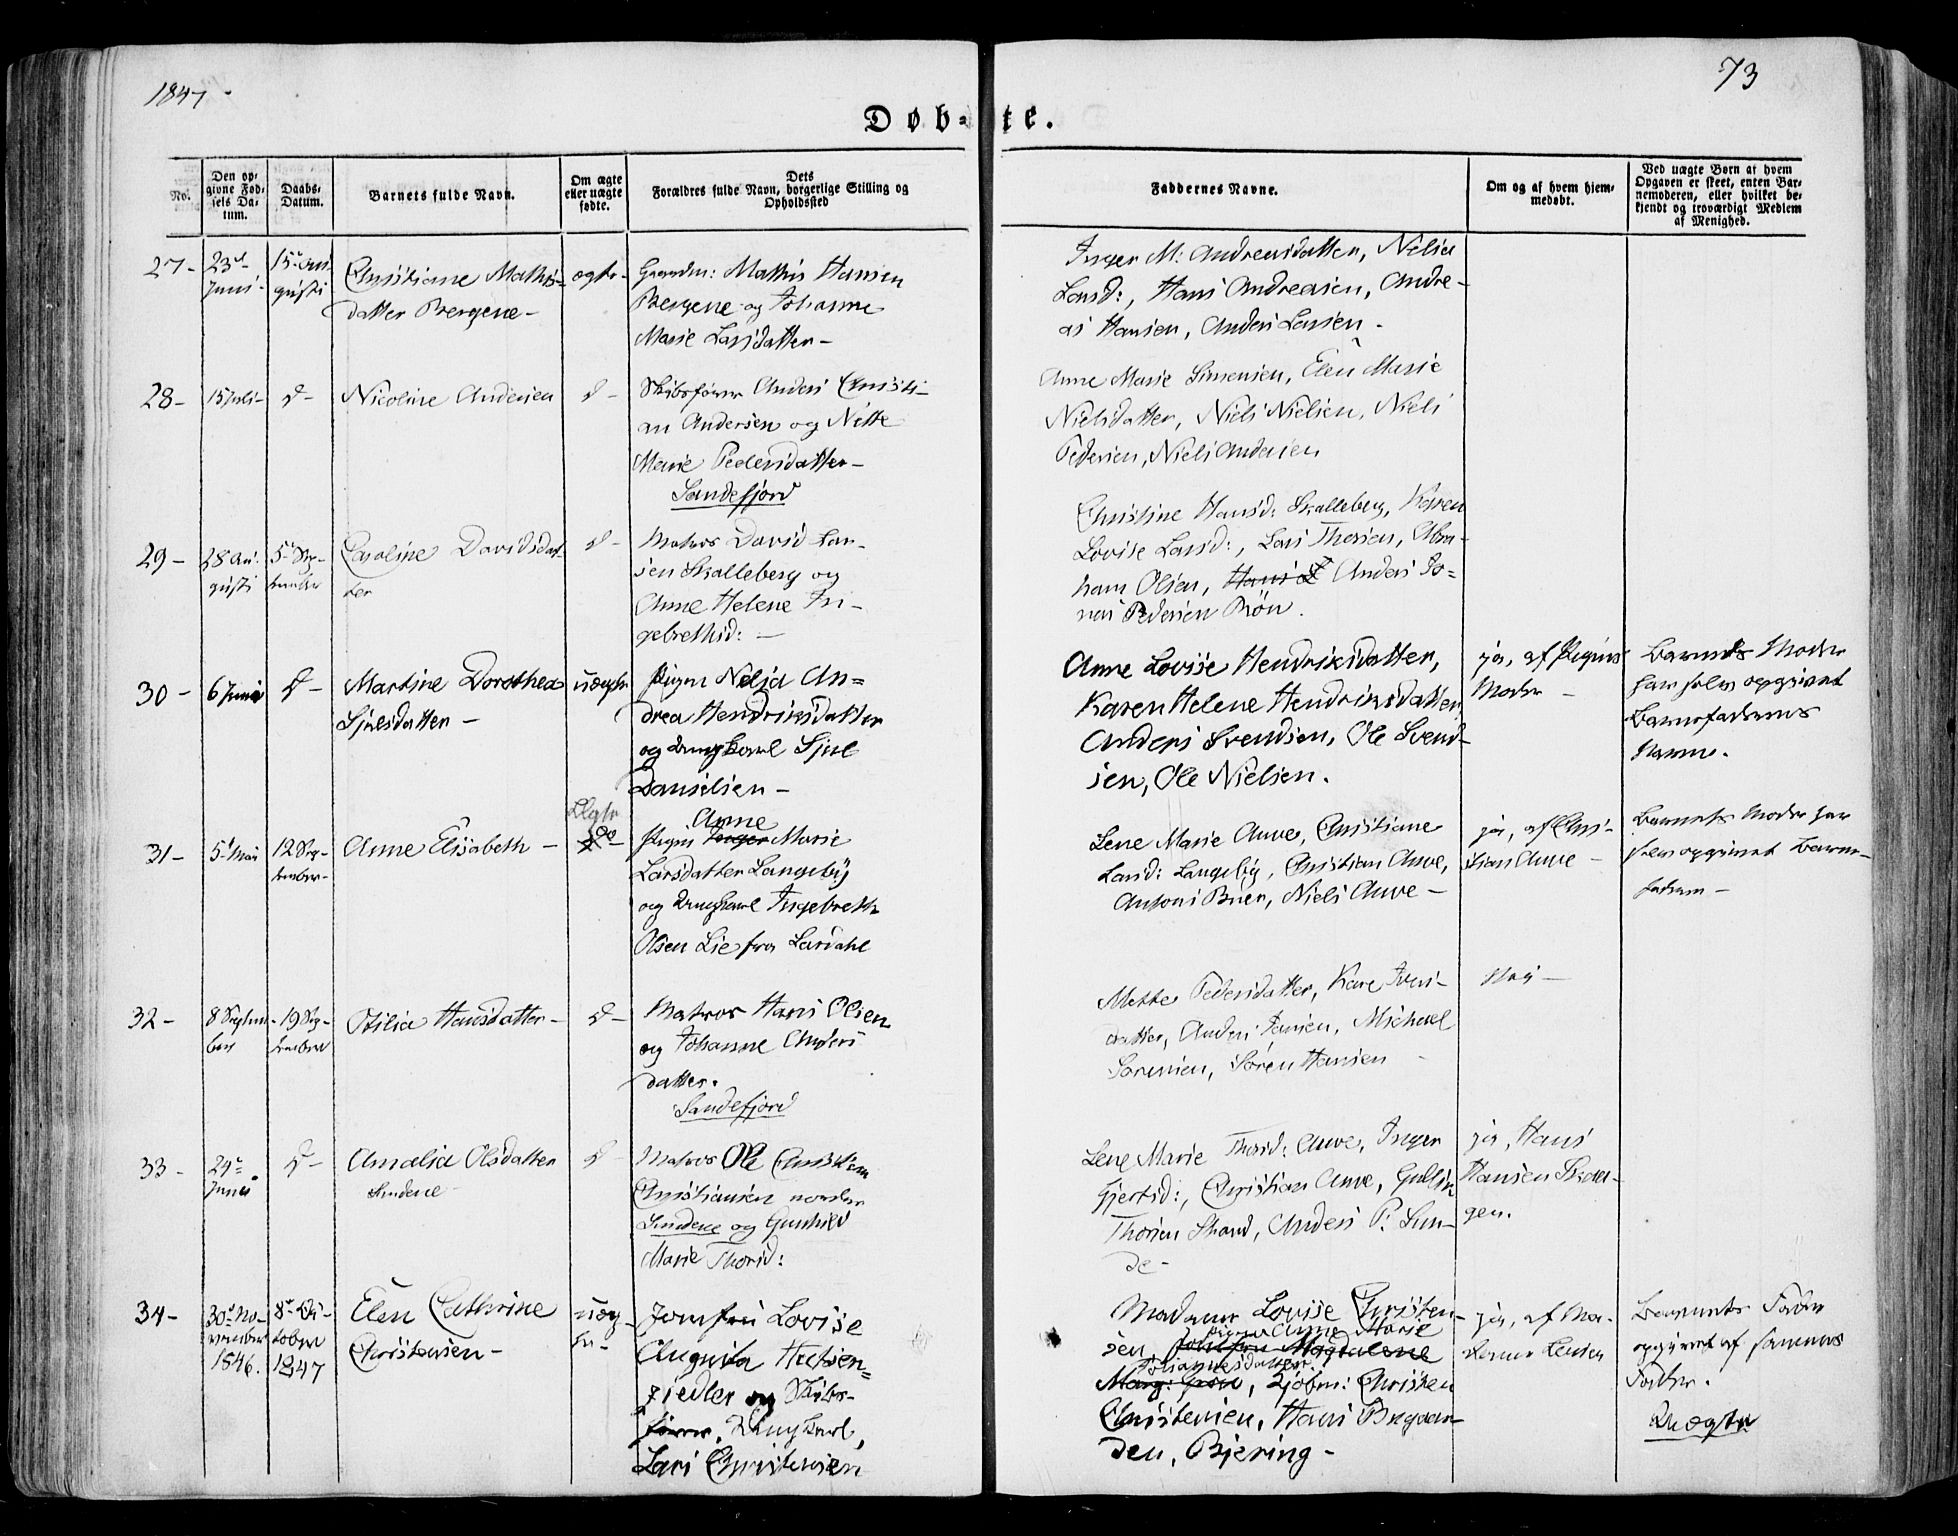 1847
73
Døb-te.
No.
Den op-
givne Fød-
sels Da-
tum.
Daabs-
Datum.
Barnets fulde Navn.
Om ægte
eller uægte
fødte.
Dets
Forældres fulde Navn, borgerlige Stilling og
Opholdssted
Faddernes Navne.
Om og af hvem hjem-
medøbt.
Ved uægte Børn af hvem
Opgaven er skeet, enten Bar-
nemoderen, eller hvilket be-
kjendt og troværdigt Medlem
af Menighed.
27-
23d
Juni
15 Au-
gusti
Christiane Mathis-
datter Bergene-
ægte-
Gaardm: Mathis Hansen
Bergene og Johanne
Marie Larsdatter-
Inger M: Andreasdatter, Nelia
Larsd:, Hans Andreasen, Andre-
as Hansen, Anders Larsen-
28-
15 Juli-
d-
Nicoline Andersen
d-
Skibsfører Anders Christi-
an Andersen og Nette
Marie Pedersdatter-
Sandefjord
Anne Marie Simensen, Elen Marie
Nielsdatter, Niels Nielsen, Niels
Pedersen, Niels Andersen
29-
28 Au-
gusti
5 Sep-
tember
Caroline Davidsdat-
ter
d-
Matros David Lar-
sen Skalleberg og
Anne Helene In-
gebrethsd:-
Christine Hansd: Skalleberg, Karen
Lovise Larsd:, Lars Thorsen, Abra-
ham Olsen, Hans Anders Jo-
nas Pedersen Rön.
30-
6 Junii
d-
Martine Dorothea
Sjulsdatter-
uægte
Pigen Nelia An=
drea Hendriksdatter
og Ungkarl Sjul
Danielsen-
Anne Lovise Hendriksdatter,
Karen Helene Hendriksdatter,
Anders Svendsen, Ole Svend-
sen, Ole Nielsen.
ja, af Pigens
Moder-
Barnets Moder
har selv opgivet
Barnefaderens
Navn.
31-
5 Mai
12 Sep-
tember-
Anne Elisabeth-
Uægte
do-
Anne
Pigen Inger Marie
Larsdatter Langeby
og Ungkarl Ingebreth
Olsen Lie fra Lardahl
Lene Marie Auve, Christiane
Larsd: Langeby, Christian Auve,
Antoni Bøer, Niels Auve-
ja, af Chri-
stian Auve-
Barnets Moder har
selv opgivet Barne-
faderen-
32-
8 Septem-
ber
19 Sep-
tember
Otilia Hansdatter-
d-
Matros Hans Olsen
og Johanne Anders
datter.
Sandefjord
Mette Pedersdatter, Kare Ivers-
datter, Anders Jansen, Michael
Sorensen, Søren Hansen
Nei-
33-
24
Junii
d-
Amalia Olsdatter
Sundene-
d-
Matros Ole Christian
Christiansen nordre
Sundene og Gunhild
Marie Thorsd:
Lene Marie Thorsd: Auve, Inger
Gjertsd:, Christian Auve, Gullik
Thorsen Strand, Anders P: Sun-
de-
ja, Hans
Hansen Skaa-
gen.
34-
30 No-
vember
1846.
8 Oc-
tober
1847
Elen Cathrine
Christensen-
uæg-
te-
Jomfru Lovise
Augusta Hutsen-
ziedler og Skibs-
fører, Ungkarl,
Lars Christensen
Madame Lovise Christen-
Pigen Anne Marie
sen, Jomfru Magdalene
Johannesdatter
Marg: Gron, Kjøbm: Christen
Christensen, Hans Bugaar-
den, Bjering-
ja, af Ma-
dame Jensen
Barnets Fader
opgivet af samme
Fader.
Uægte